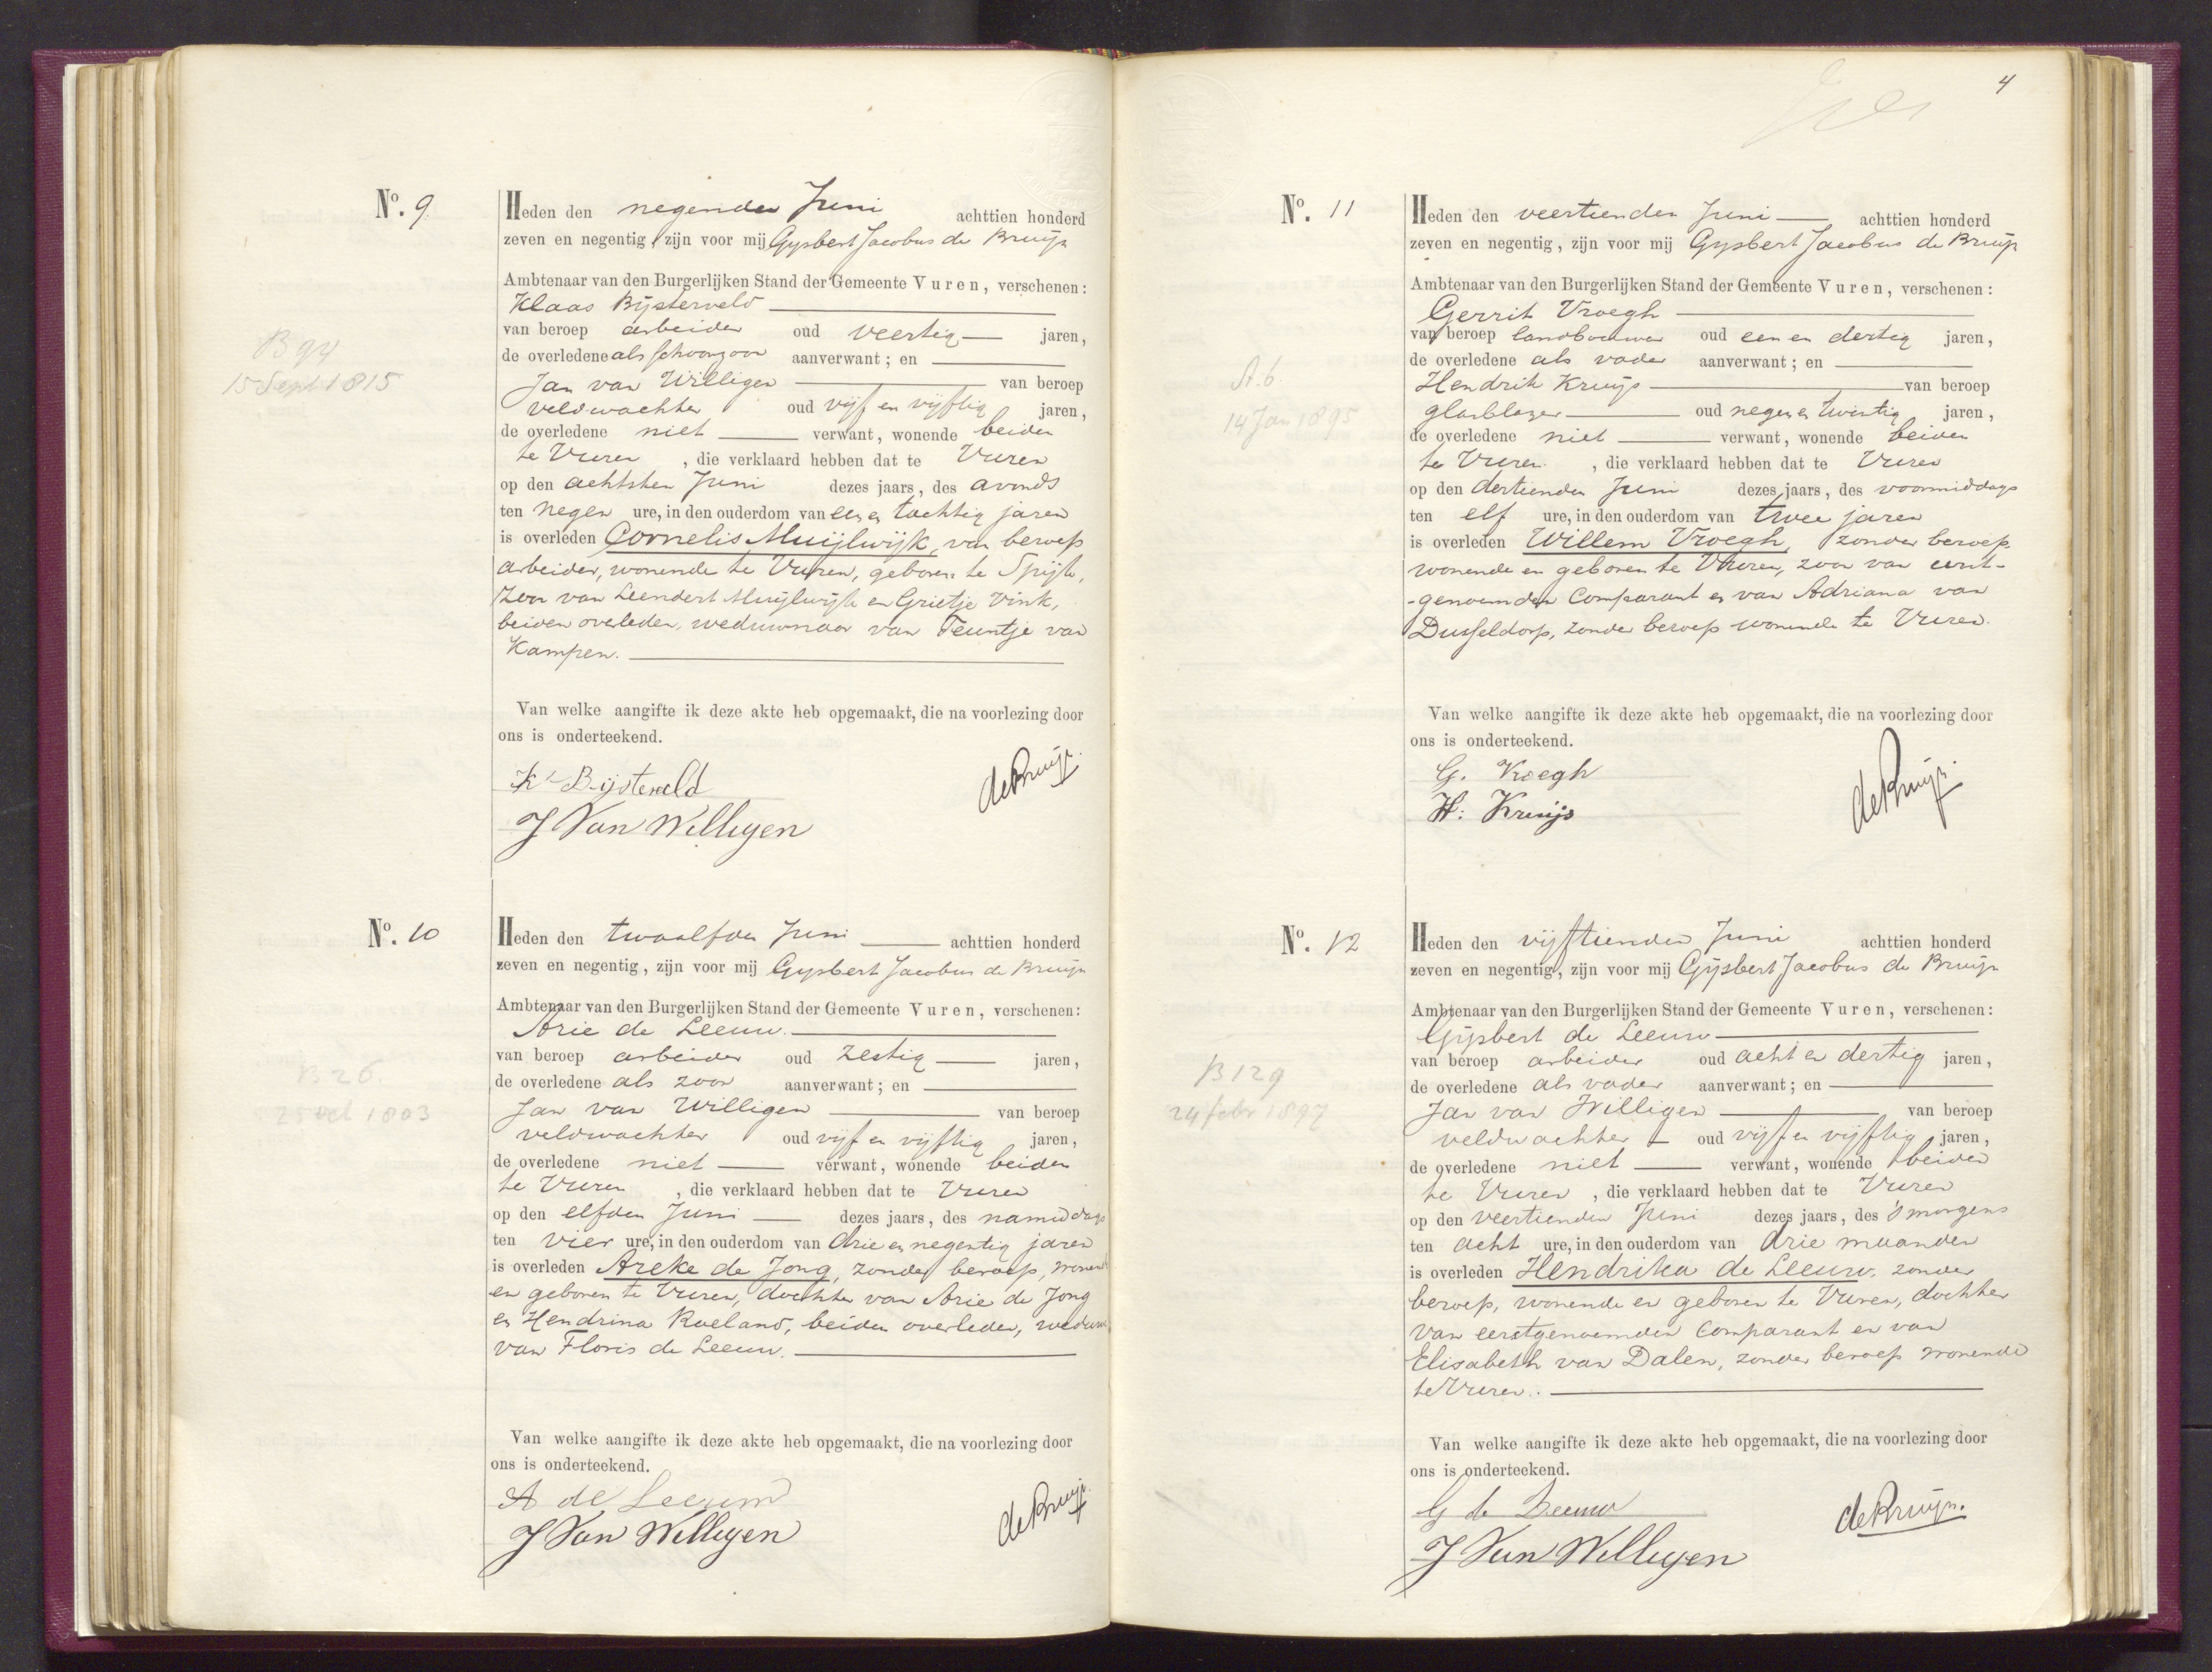 No. 9
Heden den negenden Juni achttien honderd
zeven en negentig, zijn voor mij Gysbert Jacobus de Bruijn
Ambtenaar van den Burgerlijken Stand der Gemeente Vuren, verschenen:
Klaas Bijsterveld
van beroep arbeider oud veertig jaren,
de overledene als schoonzoon aanverwant; en
Jan van Willigen van beroep
veldwachter oud vijf en vijftig jaren,
de overledene niet verwant, wonende beiden
te Vuren, die verklaard hebben dat te Vuren
op den achtsten Juni dezes jaars, des avonds
ten negen ure, in den ouderdom van een en tachtig jaren
is overleden Cornelis Muijlwijk, van beroep
arbeider, wonende te Vuren, geboren te Spijk,
zoon van Leendert Muijlwijk en Grietje Vink,
beiden overleden, weduwnaar van Teuntje van
Kampen.
Van welke aangifte ik deze akte heb opgemaakt, die na voorlezing door
ons is onderteekend.
K Bijsterveld
de Bruijn.
J Van Willigen
B 94
15 Sept 1815
No. 10
Heden den twaalfden Juni achttien honderd
zeven en negentig, zijn voor mij Gysbert Jacobus de Bruijn
Ambtenaar van den Burgerlijken Stand der Gemeente Vuren, verschenen:
Arie de Leeuw.
van beroep arbeider oud zestig jaren,
de overledene als zoon aanverwant; en
Jan van Willigen van beroep
veldwachter oud vijf en vijftig jaren,
de overledene niet verwant, wonende beiden
te Vuren, die verklaard hebben dat te Vuren
op den elfden Juni dezes jaars, des namiddags
ten vier ure, in den ouderdom van drie en negentig jaren
is overleden Areke de Jong, zonder beroep, wonende
en geboren te Vuren, dochter van Arie de Jong
en Hendrina Roeland, beiden overleden, weduwe
van Floris de Leeuw.
Van welke aangifte ik deze akte heb opgemaakt, die na voorlezing door
ons is onderteekend.
A de Leeuw
de Bruijn
J Van Willigen
B 26
25 Oct 1803
4
No. 11
Heden den veertienden Juni achttien honderd
zeven en negentig, zijn voor mij Gysbert Jacobus de Bruijn
Ambtenaar van den Burgerlijken Stand der Gemeente Vuren, verschenen:
Gerrit Vroegh
van beroep landbouwer oud een en dertig jaren,
de overledene als vader aanverwant; en
Hendrik Kruijs van beroep
glasblazer oud negen en twintig jaren,
de overledene niet verwant, wonende beiden
te Vuren, die verklaard hebben dat te Vuren
op den dertienden Juni dezes jaars, des voormiddags
ten elf ure, in den ouderdom van twee jaren
is overleden Willem Vroegh, zonder beroep
wonende en geboren te Vuren, zoon van eerst-
-genoemden Comparant en van Adriana van
Dusseldorp, zonder beroep wonende te Vuren.
Van welke aangifte ik deze akte heb opgemaakt, die na voorlezing door
ons is onderteekend.
G. Vroegh
H: Kruijs
de Bruijn.
A. 6
14 Jan 1895
No. 12
Heden den vijftienden Juni achttien honderd
zeven en negentig, zijn voor mij Gijsbert Jacobus de Bruijn
Ambtenaar van den Burgerlijken Stand der Gemeente Vuren, verschenen:
Gijsbert de Leeuw
van beroep arbeider oud acht en dertig jaren,
de overledene als vader aanverwant; en
Jan van Willigen van beroep
veldwachter oud vijf en vijftig jaren,
de overledene niet verwant, wonende beiden
te Vuren, die verklaard hebben dat te Vuren
op den veertienden Juni dezes jaars, des 's morgens
ten acht ure, in den ouderdom van drie maanden
is overleden Hendrika de Leeuw, zonder
beroep, wonende en geboren te Vuren, dochter
van eerstgenoemden Comparant en van
Elisabeth van Dalen, zonder beroep wonende
te Vuren.
Van welke aangifte ik deze akte heb opgemaakt, die na voorlezing door
ons is onderteekend.
G de Leeuw
de Bruijn.
J Van Willigen
B 129
24 febr 1897